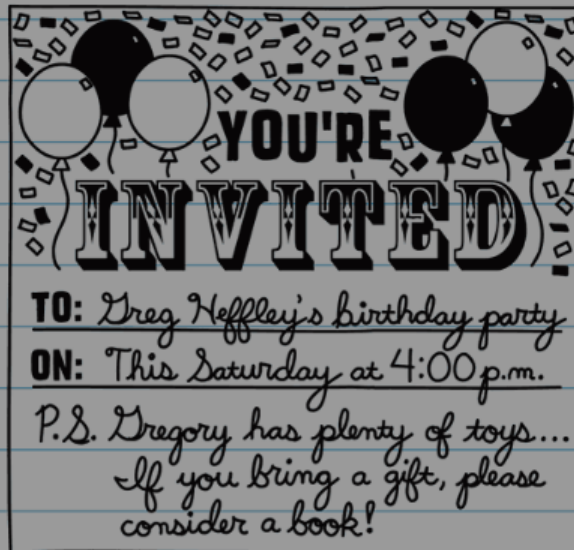 YOU'RE
INVITED
TO: Greg Heffley's birthday party
ON: This Saturday at 4:00 p.m.
P.S. Gregory has plenty of toys...
If you bring a gift, please
consider a book!